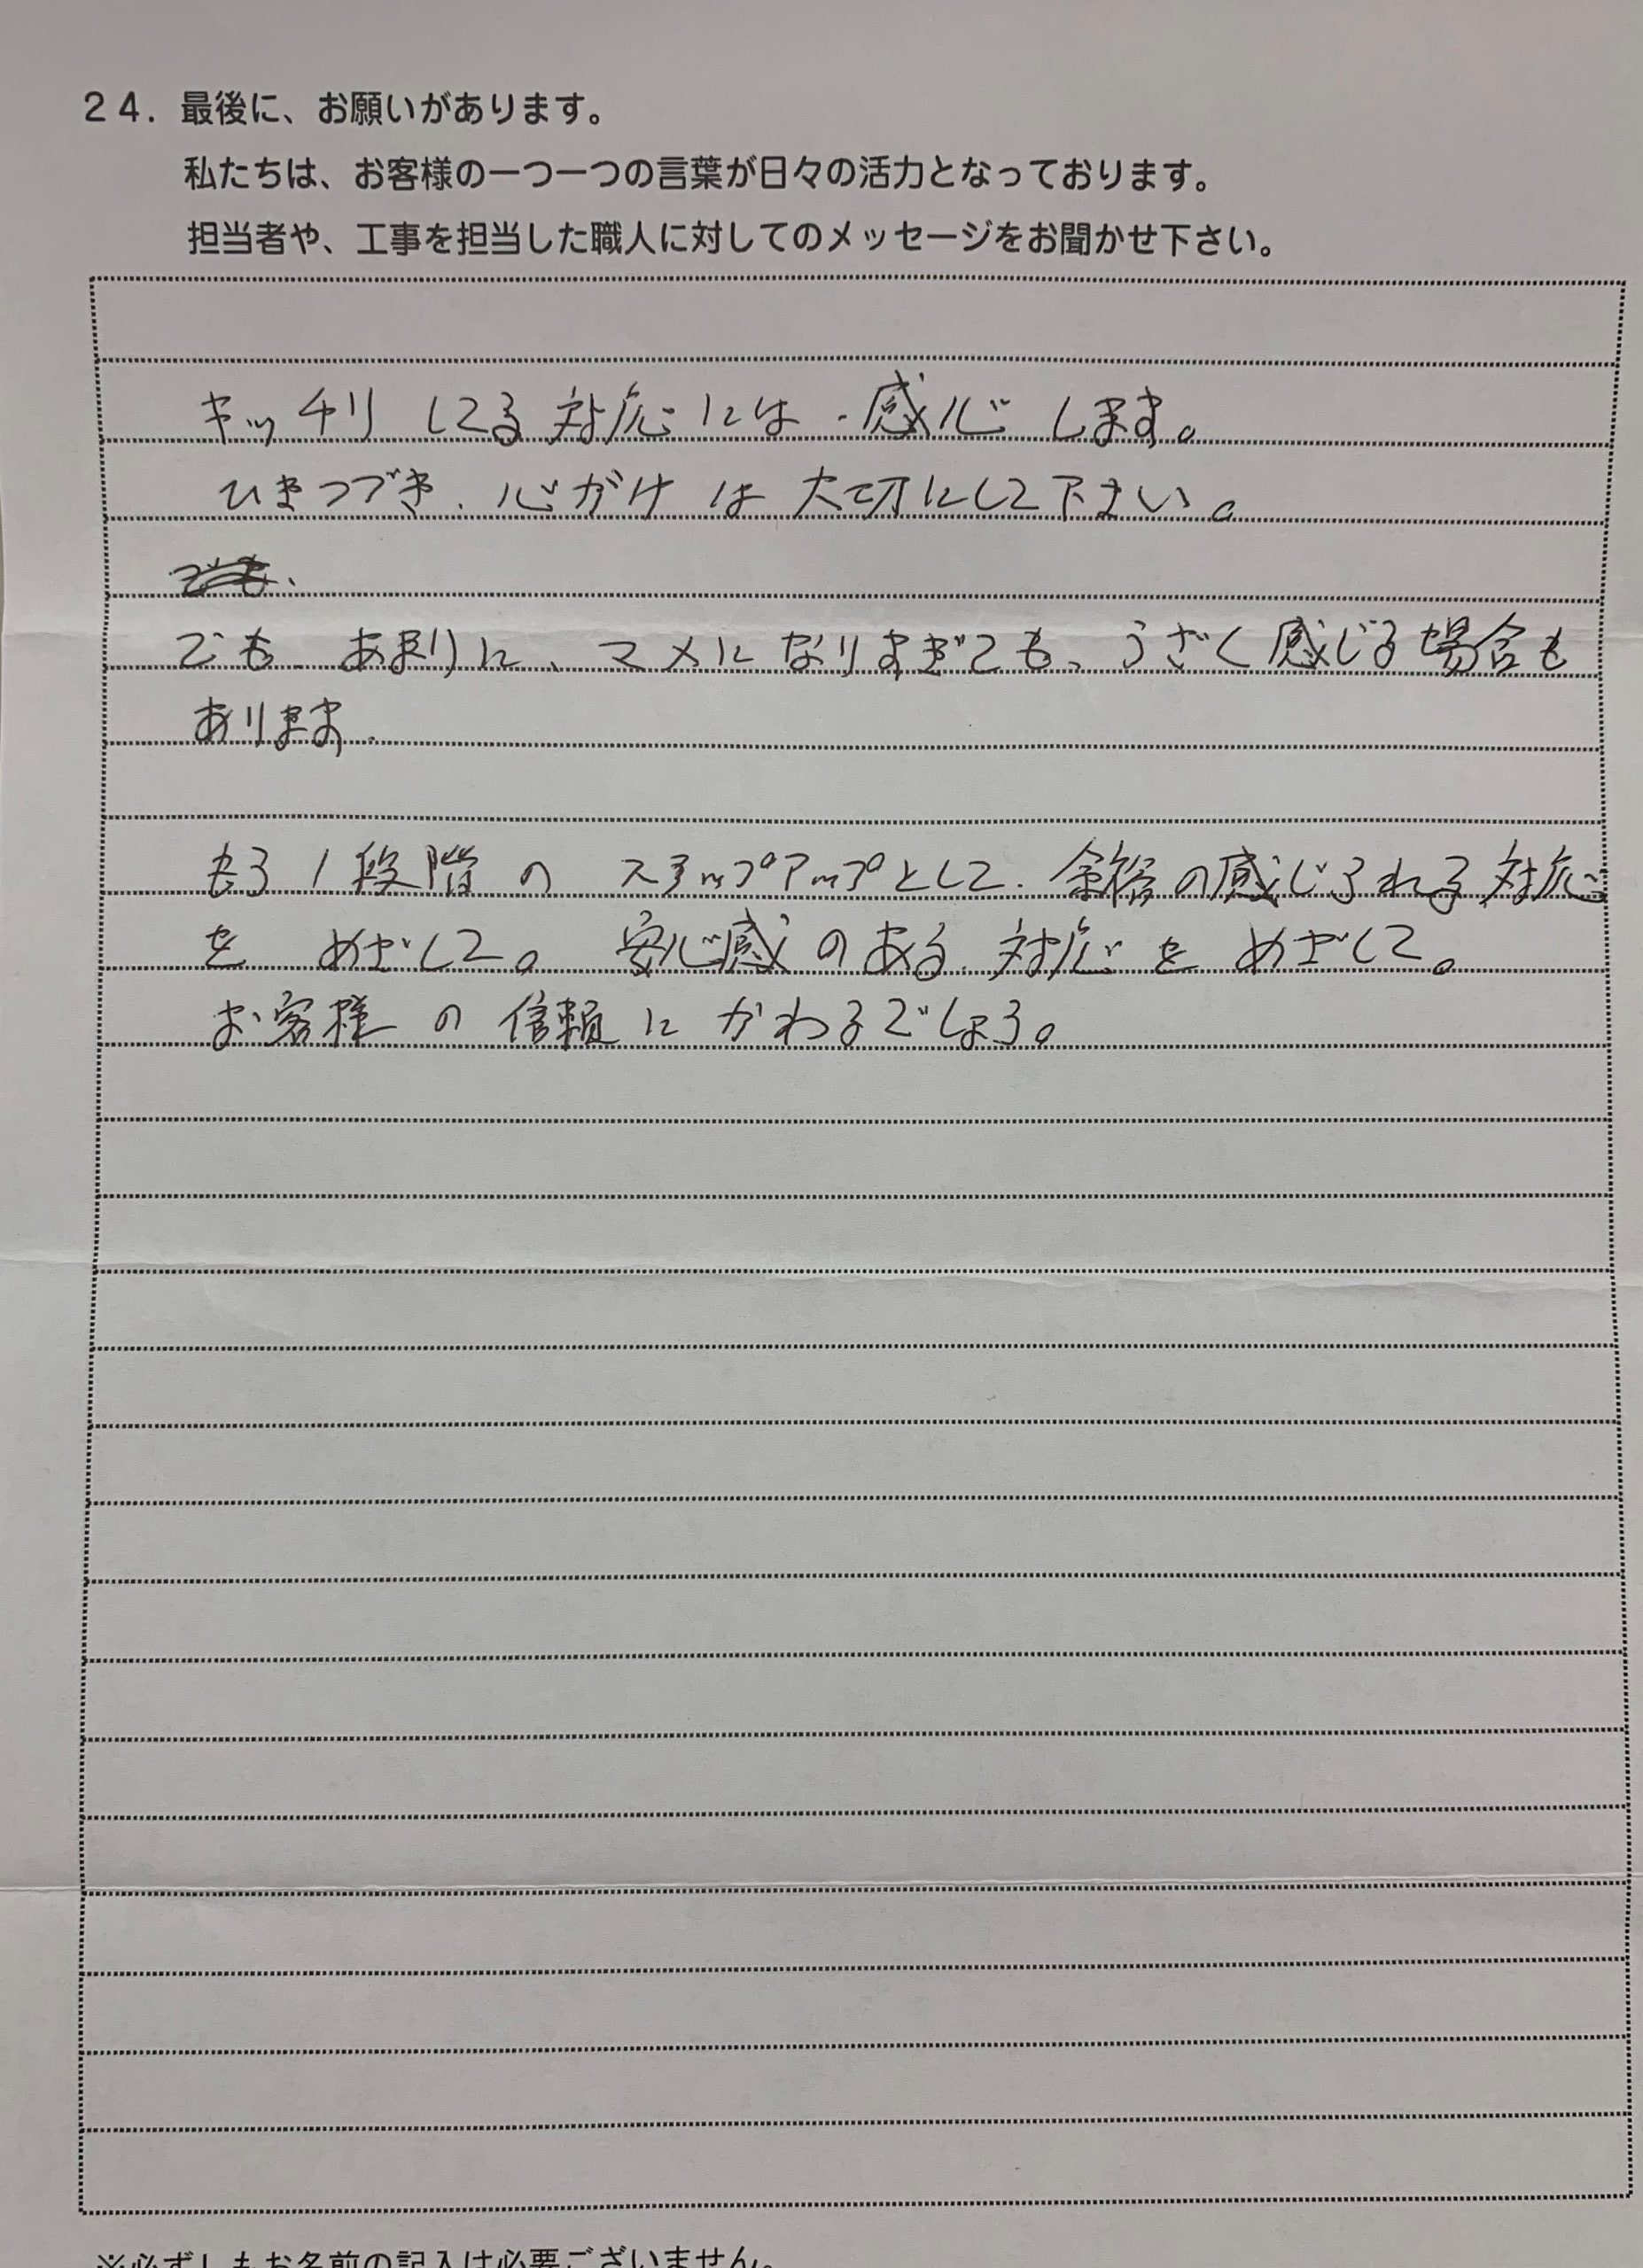 24. 最後に、お願いがあります。
私たちは、お客様の一つ一つの言葉が日々の活力となっております。
担当者や、工事を担当した職人に対してのメッセージをお聞かせ下さい。
キッチリしてる対応には、感心します。
ひきつづき、心がけは大切にして下さい。
でも、
でも、あまりに、マメになりすぎても、うざく感じる場合も
あります。
もう1段階のステップアップとして、余裕の感じられる対応
をめざして。安心感のある対応をめざして。
お客様の信頼にかわるでしょう。
※必ずしもお名前の記入は必要ございません。